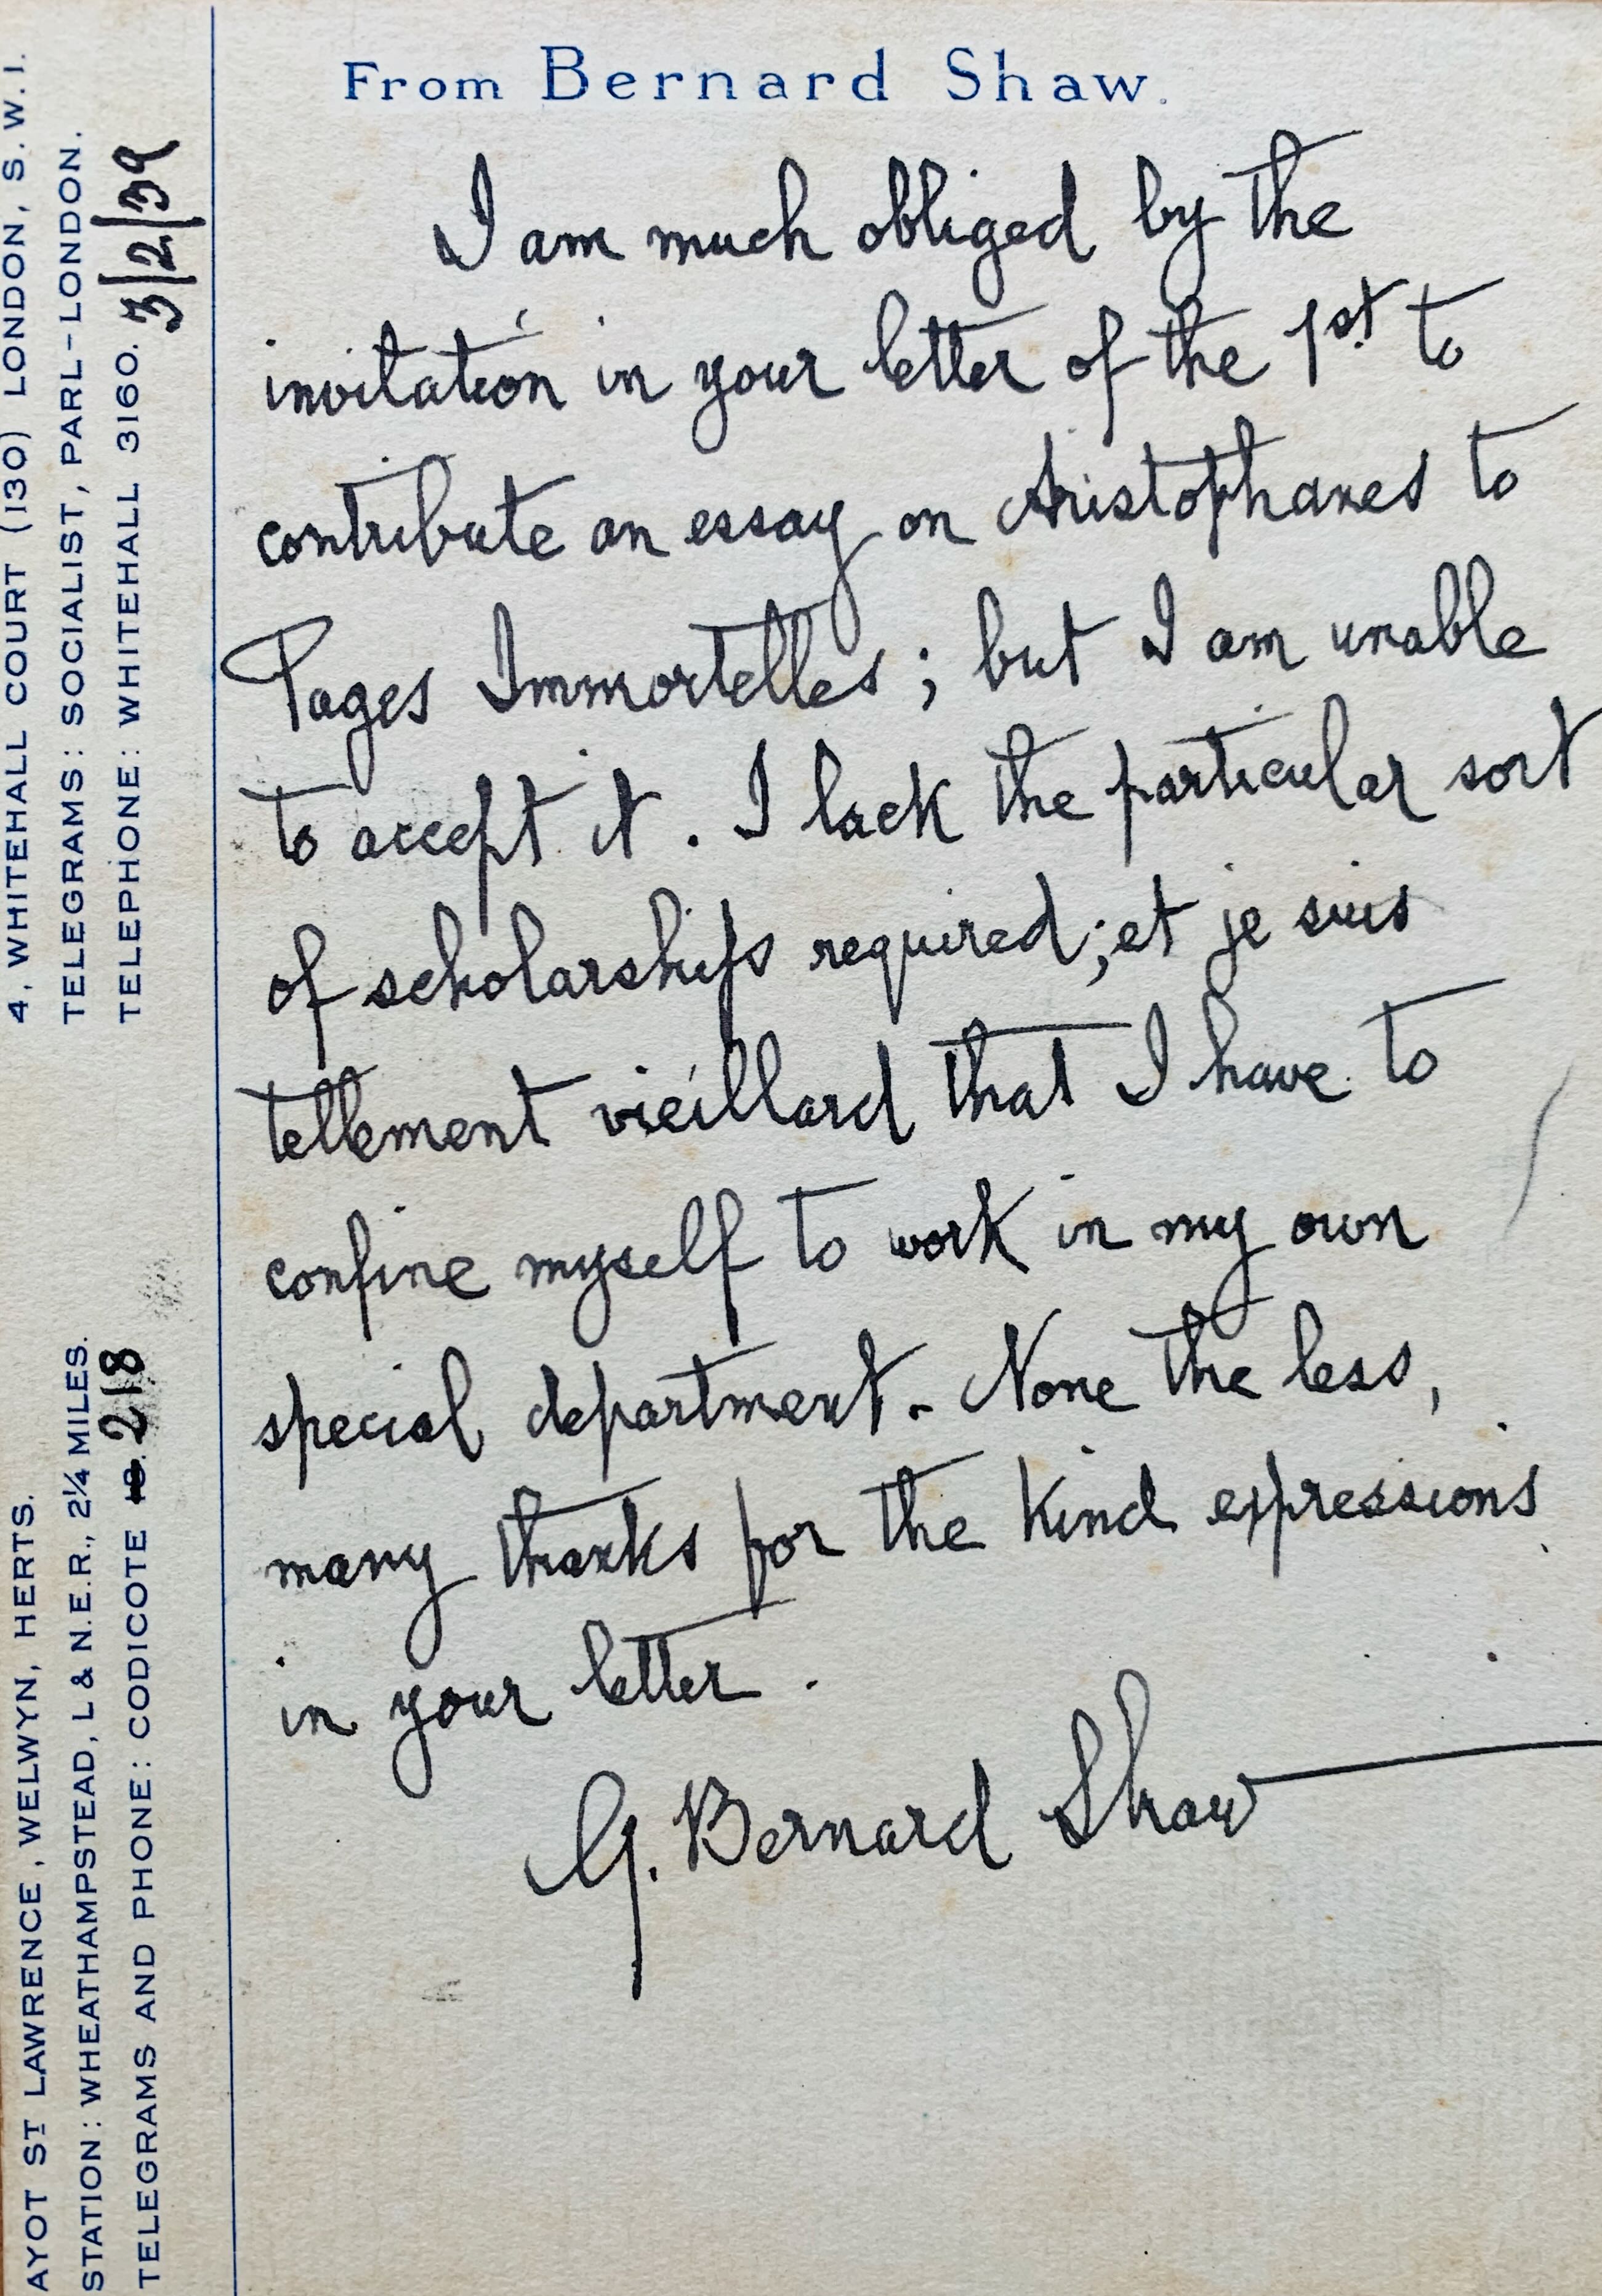 From Bernard Shaw.
I am much obliged by the
invitation in your letter of the 1st to
contribute an essay on Aristophanes to
Pages Immortelles; but I am unable
to accept it. I lack the particular sort
of scholarship required; et je suis
tellement vieillard that I have to
confine myself to work in my own
special department. None the less,
many thanks for the kind expressions
in your letter.
G. Bernard Shaw
4, WHITEHALL COURT (130) LONDON, S.W.1.
TELEGRAMS: SOCIALIST, PARL-LONDON.
TELEPHONE: WHITEHALL 3160. 3/2/39
AYOT ST LAWRENCE, WELWYN, HERTS.
STATION: WHEATHAMPSTEAD, L & N.E.R., 2¼ MILES.
TELEGRAMS AND PHONE: CODICOTE 18. 218